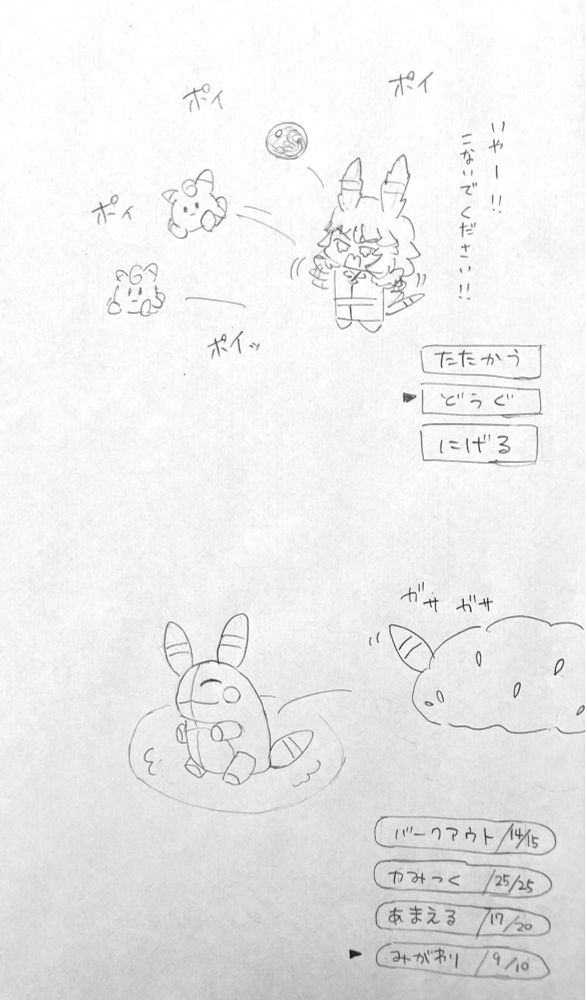 ポイ
ポイ
いやー!!
こないでください!!
ポイ
ポイッ
たたかう
▶どうぐ
にげる
ガサ ガサ
バークアウト/14/15
かみつく/25/25
あまえる/17/20
▶みがわり/9/10